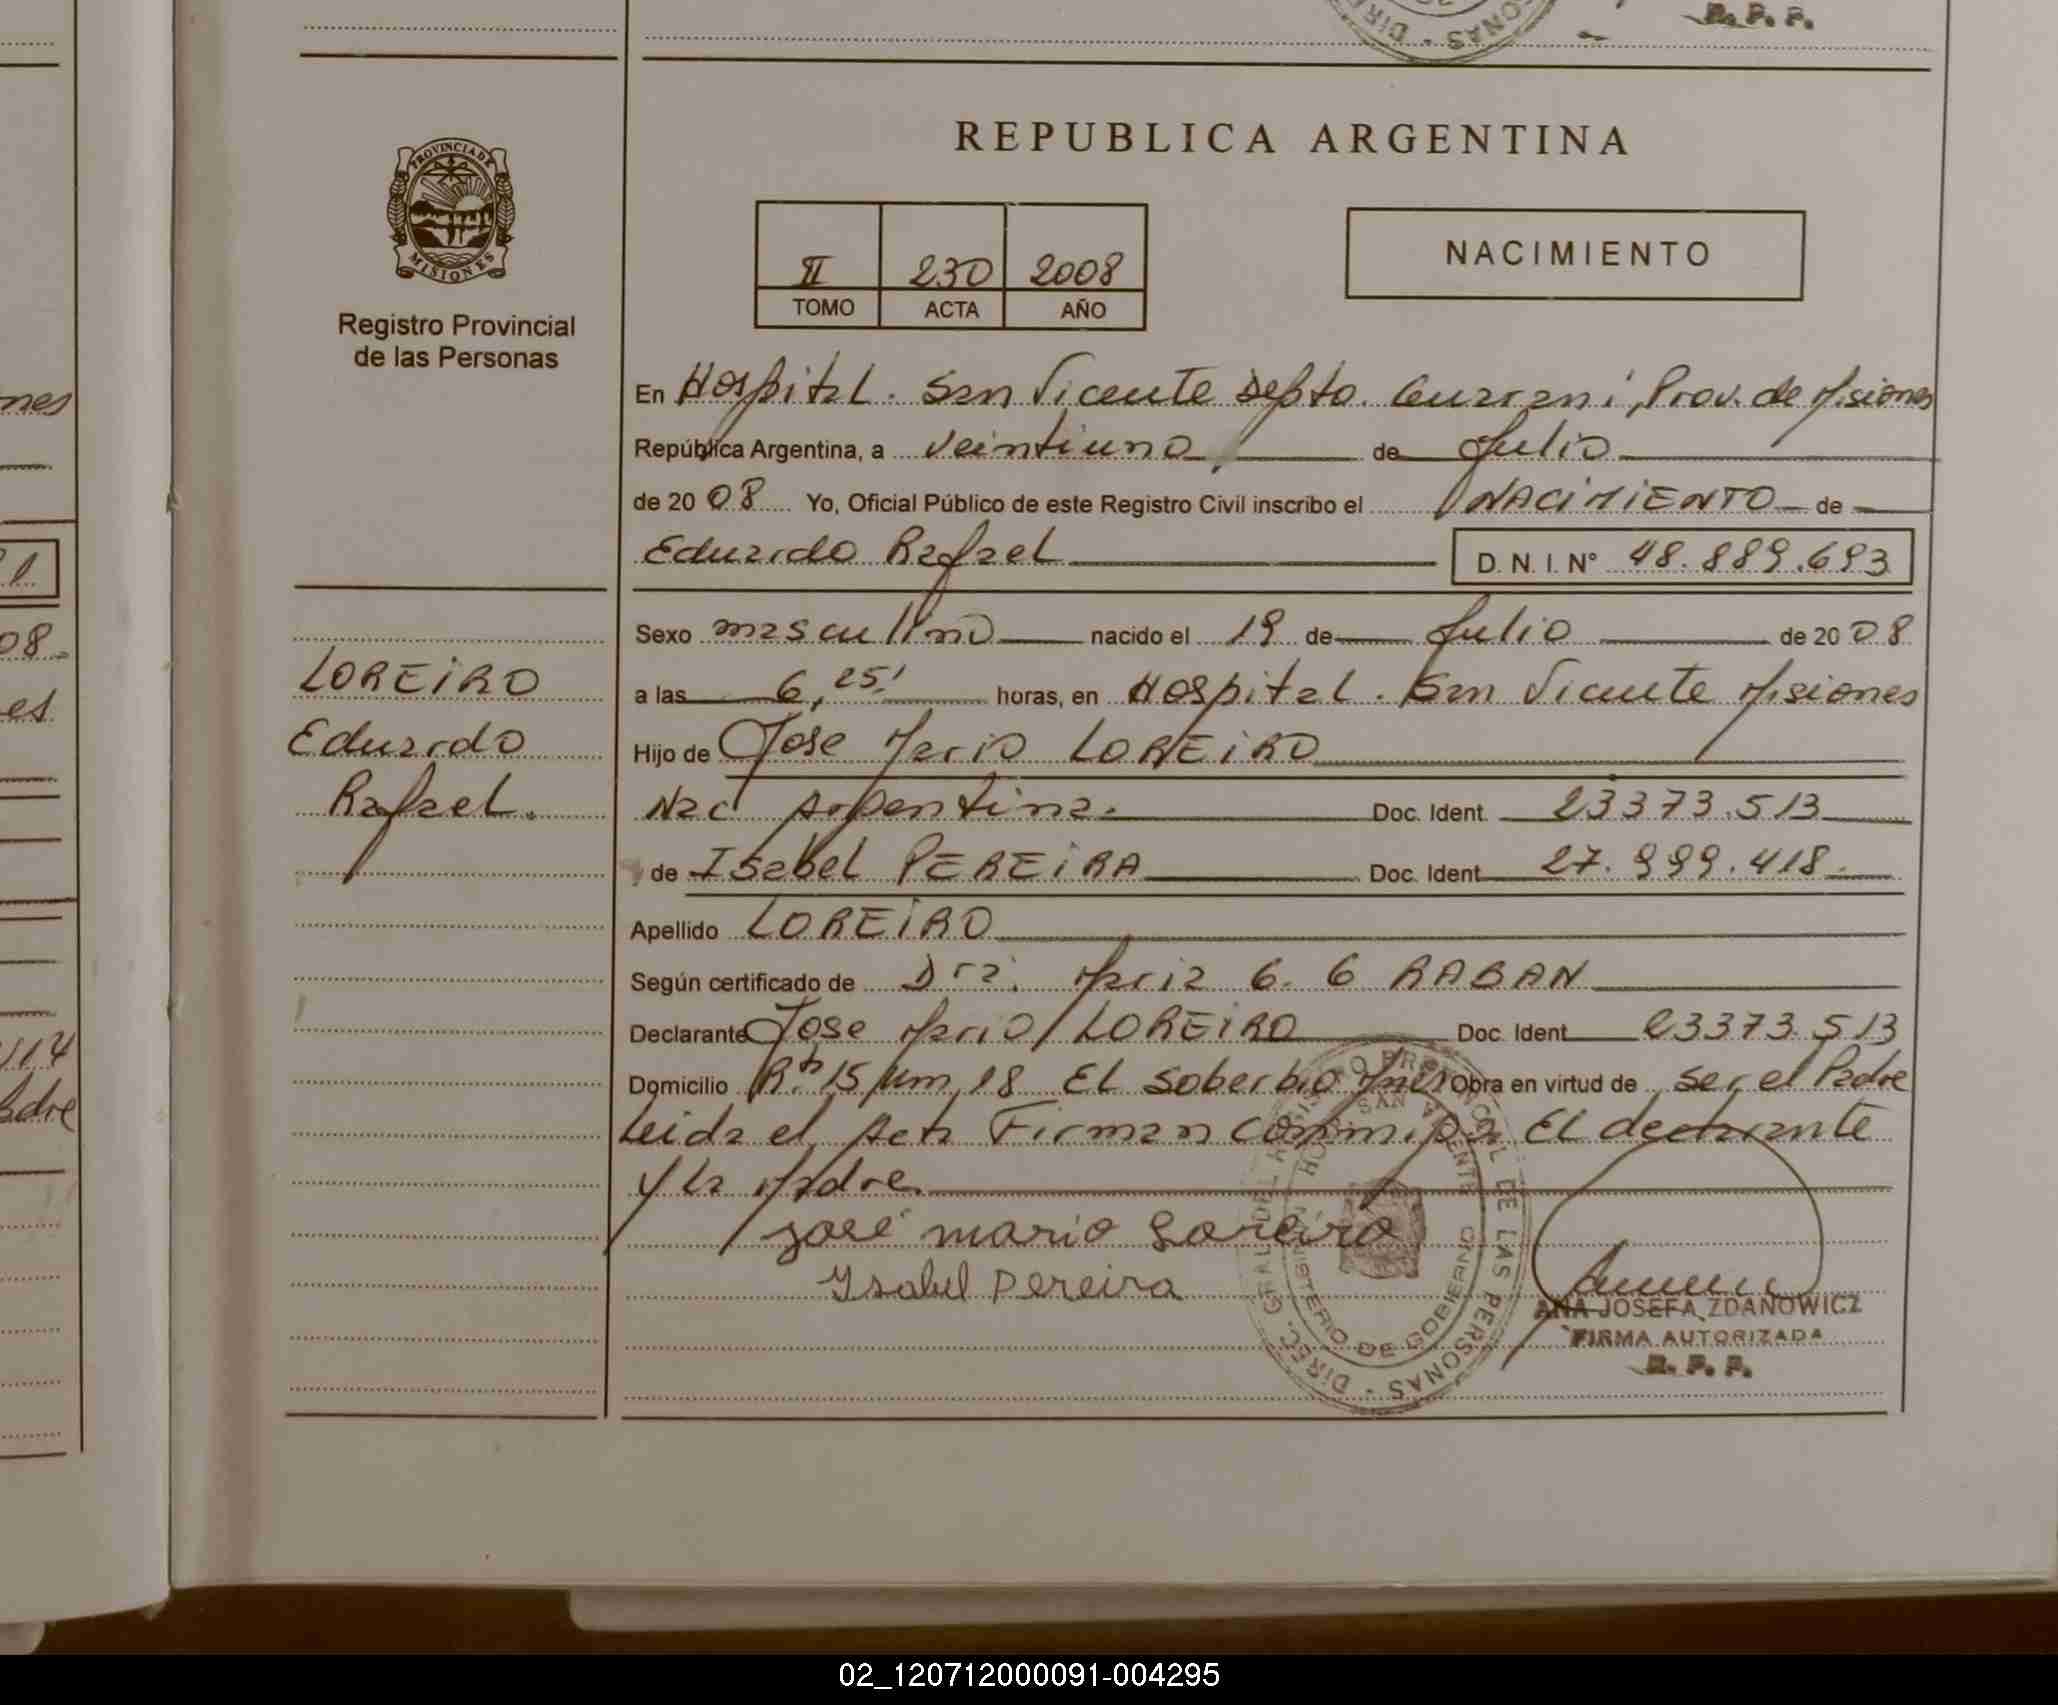 R. P. P.
REPUBLICA ARGENTINA
PROVINCIA DE MISIONES
Registro Provincial
de las Personas
II 230 2008
TOMO ACTA AÑO
NACIMIENTO
En Hospital. San Vicente Depto. Guarani, Prov. de Misiones
República Argentina, a veintiuno de Julio
de 2008 Yo, Oficial Público de este Registro Civil inscribo el NACIMIENTO de
Eduardo Rafael D. N. I. N° 48.889.693
Sexo masculino nacido el 19 de Julio de 2008
a las 6,25' horas, en Hospital. San Vicente Misiones
Hijo de Jose Mario LOREIRO
Nac Argentina. Doc. Ident. 23373.513
de Isabel PEREIRA Doc. Ident. 27.999.418.
Apellido LOREIRO
Según certificado de Dra. Maria G. G RABAN
Declarante Jose Mario LOREIRO Doc. Ident. 23373.513
Domicilio Rta 15 Km 18 El Soberbio Obra en virtud de ser el Padre
Leida el Acta Firman conmigo El declarante
y la Madre.
LOREIRO
Eduardo
Rafael.
José mario Loreiro
Ysabel Pereira
DIREC. GRAL. DEL REGISTRO PROVINCIAL DE LAS PERSONAS
MINISTERIO DE GOBIERNO
SAN VICENTE
ANA JOSEFA ZDANOWICZ
FIRMA AUTORIZADA
R. P. P.
nes
08
es
114
adre
02_120712000091-004295